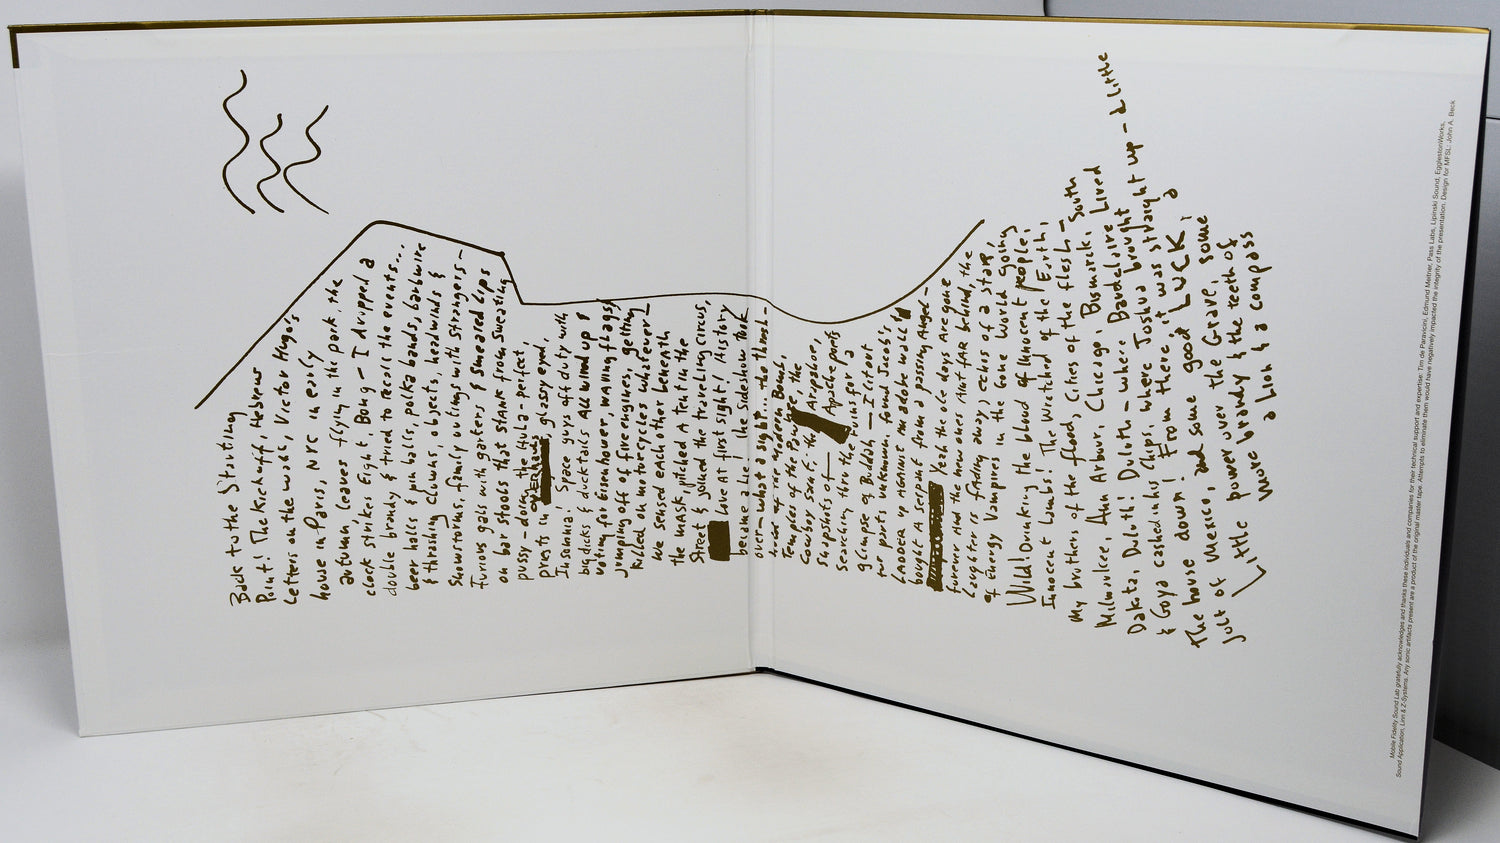 Back to the Starting
Point! The Kickoff, Hebrews
Letters on the wall, Victor Hugo's
house in Paris, NYC in early
autumn, leaves flying in the park, the
clock strikes Eight, Bong – I dropped a
double brandy & tried to recall the events...
beer halls & pin balls, polka bands, barbwire
& thrashing Clowns, objects, headwinds &
Snowstorms, family outings with strangers –
Furious gals with garters & smeared Lips
on bar stools that stank from sweating
pussy – doing the Hula – perfect,
priests in overhauls, glassy eyed,
Insomnia! Space guys off duty with
big dicks & ducktails All wind up &
voting for Eisenhower, waving flags,
jumping off of fire engines, getting
Killed on motorcycles whatever –
We sensed each other beneath
the mask, pitched A tent in the
Street & joined the traveling circus,
Love At first sight! History
became a Lie! the Sideshow took
over – what a sight – the thresh-
hold of the Modern Bomb,
Temples of the Pawnee, the
Cowboy Saint, the Arapaho,
Snapshots of Apache poets
Searching thru the ruins for a
glimpse of Buddah – I lit out
for parts unknown, found Jacob's
Ladder up Against an adobe wall &
bought A serpent from a passing Angel –
Yeah the ole days Are gone
forever And the new ones Aint far behind, the
Laughter is fading away, echos of a star,
of Energy Vampires in the Gone World going
Wild! Drinking the blood of innocent people,
Innocent Lambs! The Wretched of the Earth,
My brothers of the flood, Cities of the flesh –
Milwaukee, Ann Arbor, Chicago, Bismarck, South
Dakota, Duluth! Duluth – where Baudelaire Lived
& Goya cashed in his Chips, where Joshua brought
The house down! From there, it was straight up – a Little
jolt of Mexico, and some good LUCK, a
Little power over the Grave, some
more brandy & the teeth of
a Lion & a compass
Mobile Fidelity Sound Lab gratefully acknowledges and thanks these individuals and companies for their technical support and expertise: Tim de Paravicini, Edmund Meitner, Pass Labs, Lipinski Sound, EgglestonWorks,
Sound Application, Linn & Z-Systems. Any sonic artifacts present are a product of the original master tape. Attempts to eliminate them would have negatively impacted the integrity of the presentation. Design for MFSL: John A. Beck